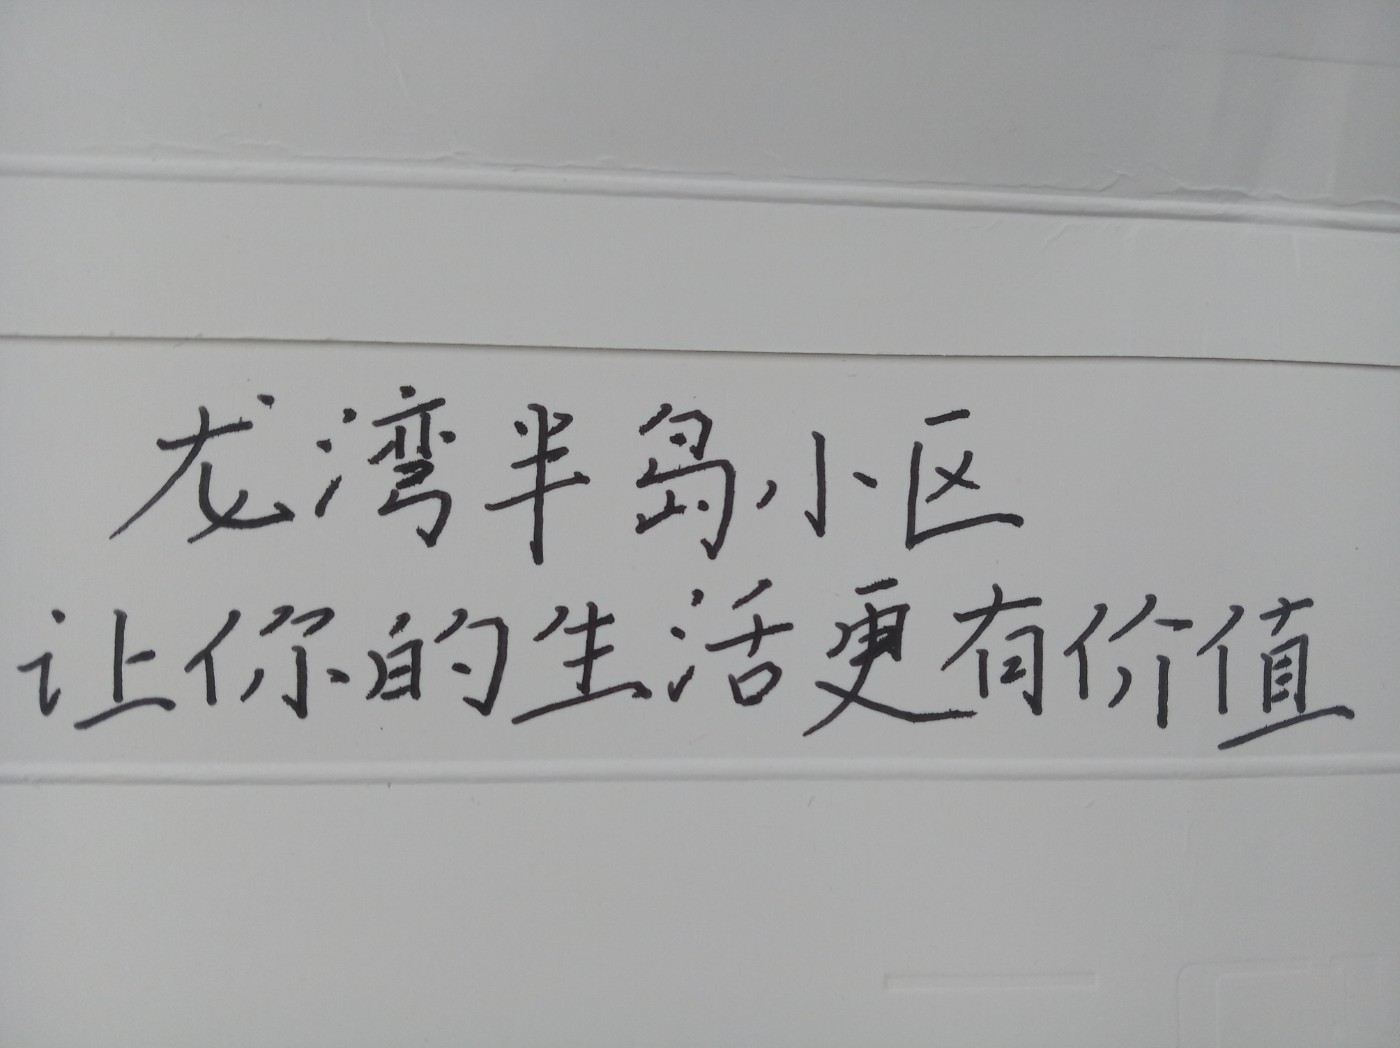 龙湾半岛小区
让你的生活更有价值